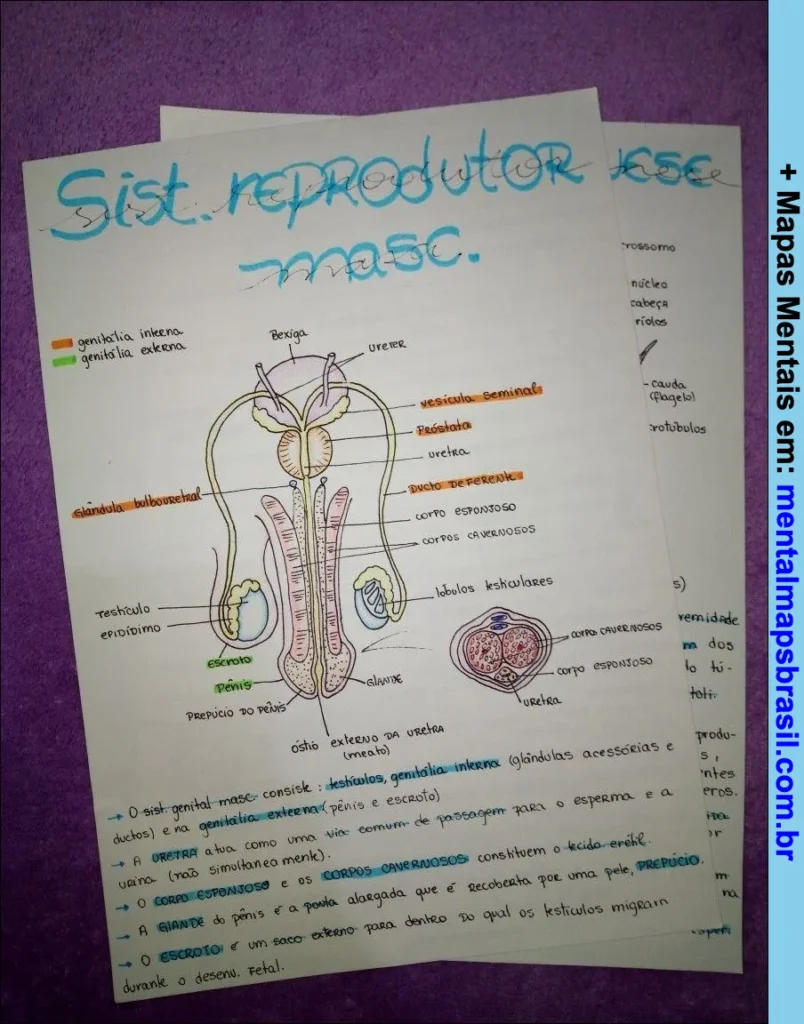 Sist. reprodutor
masc.
genitália interna
genitália externa
Bexiga
ureter
vesícula seminal
Próstata
uretra
Glândula bulbouretral
Ducto deferente
corpo esponjoso
corpos cavernosos
Testículo
epidídimo
lóbulos testiculares
Escroto
Pênis
Glande
prepúcio do pênis
óstio externo da uretra
(meato)
corpo cavernosos
corpo esponjoso
uretra
→ O sist. genital masc. consiste: testículos, genitália interna (glândulas acessórias e
ductos) e na genitália externa (pênis e escroto)
→ A uretra atua como uma via comum de passagem para o esperma e a
urina (não simultaneamente).
→ O corpo esponjoso e os corpos cavernosos constituem o tecido erétil.
→ A glande do pênis é a ponta alargada que é recoberta por uma pele, prepúcio.
→ O escroto é um saco externo para dentro do qual os testículos migram
durante o desenv. fetal.
rossomo
núcleo
cabeça
ríolos
cauda
(flagelo)
crotúbulos
s)
remidade
m dos
lo tú-
produ-
s,
ntes
eros.
or
m
na
+ Mapas Mentais em: mentalmapsbrasil.com.br